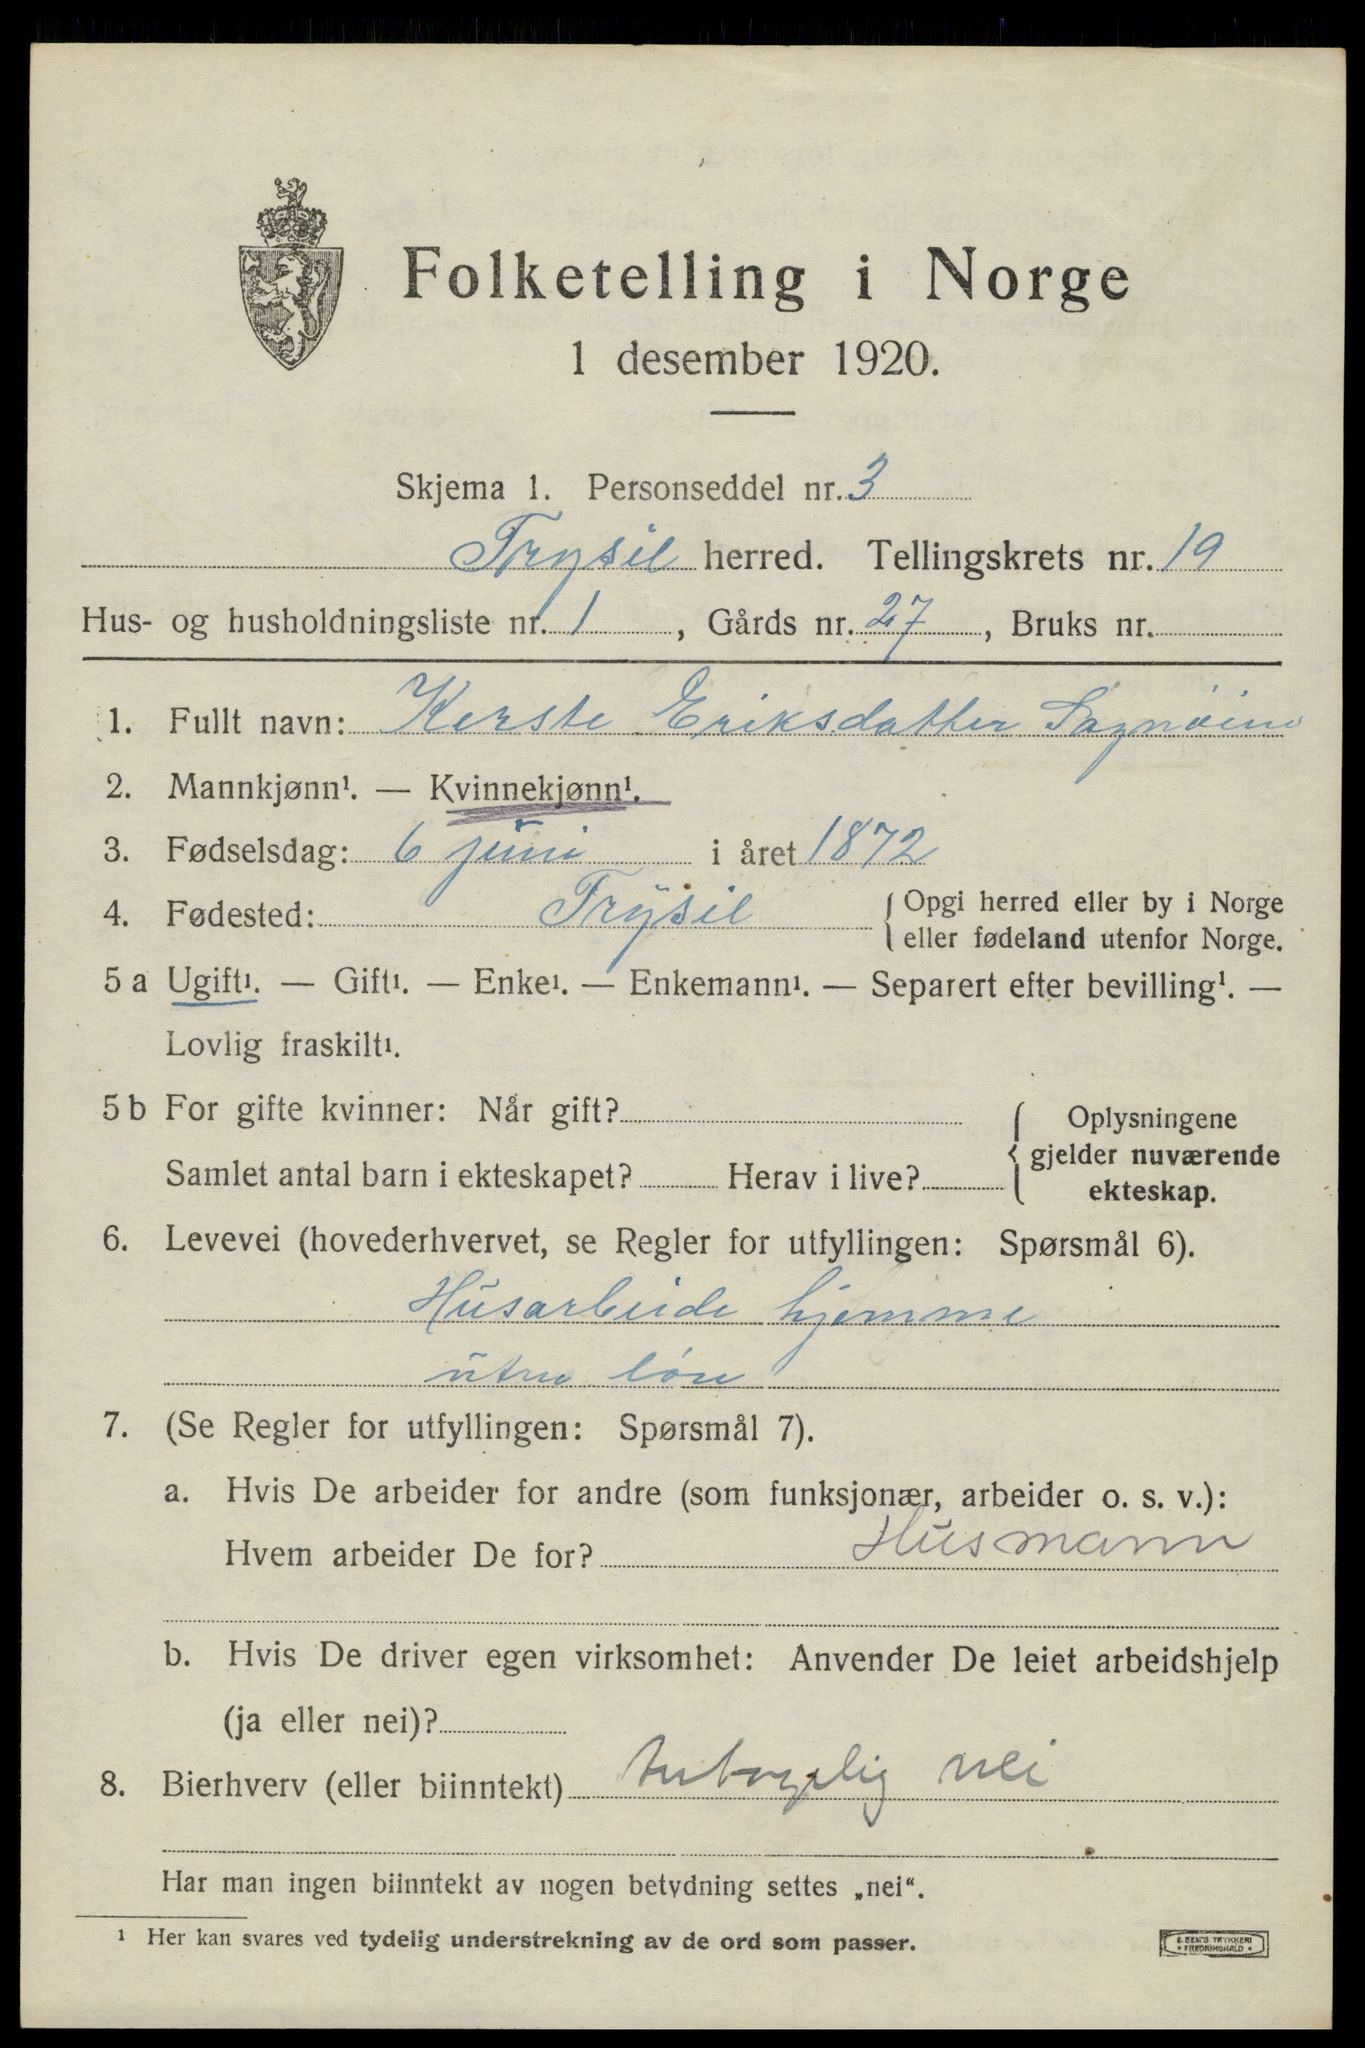 Folketelling i Norge
1 desember 1920.
Skjema 1. Personseddel nr. 3
Trysil herred. Tellingskrets nr. 19
Hus- og husholdningsliste nr. 1, Gårds nr. 27, Bruks nr.
1. Fullt navn: Kerste Eriksdatter
2. Mannkjønn¹. — Kvinnekjønn¹.
3. Fødselsdag: 6 juni i året 1872
4. Fødested: Trysil { Opgi herred eller by i Norge
eller fødeland utenfor Norge.
5 a Ugift¹. — Gift¹. — Enke¹. — Enkemann¹. — Separert efter bevilling¹. —
Lovlig fraskilt¹.
5 b For gifte kvinner: Når gift?
Samlet antal barn i ekteskapet? Herav i live?
{ Oplysningene
gjelder nuværende
ekteskap.
6. Levevei (hovederhvervet, se Regler for utfyllingen: Spørsmål 6).
Husarbeide hjemme
uten løn
7. (Se Regler for utfyllingen: Spørsmål 7).
a. Hvis De arbeider for andre (som funksjonær, arbeider o. s. v.):
Hvem arbeider De for? Husmann
b. Hvis De driver egen virksomhet: Anvender De leiet arbeidshjelp
(ja eller nei)?
8. Bierhverv (eller biinntekt) nei
Har man ingen biinntekt av nogen betydning settes „nei“.
¹ Her kan svares ved tydelig understrekning av de ord som passer.
E. SEM'S TRYKKERI
* FREDRIKSHALD *